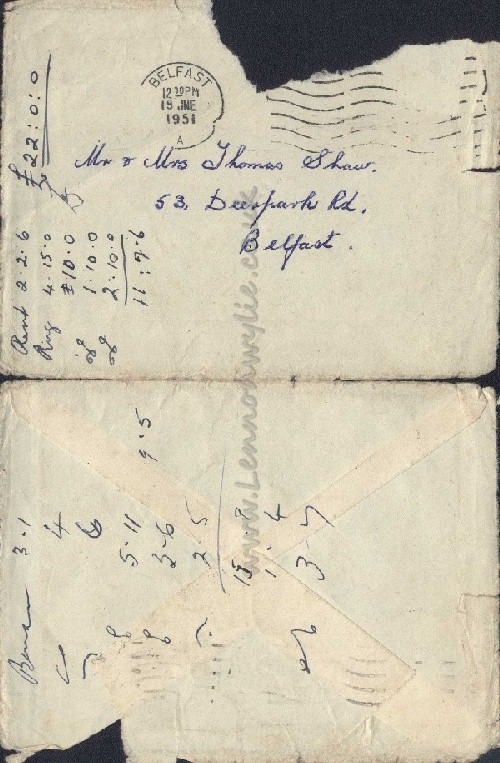 BELFAST
12 30 PM
15 JNE
1951
A
Mr & Mrs Thomas Shaw.
53, Deerpark Rd.
Belfast.
£22:0:0
Rent 2.2.6
Ring 4.15.0
£10.0
1.10.0
2.10.0
11:9.6
www.Lennonwylie.co.uk
3.1
4
6
5.11 9.5
3.6
2.5
4
3.7